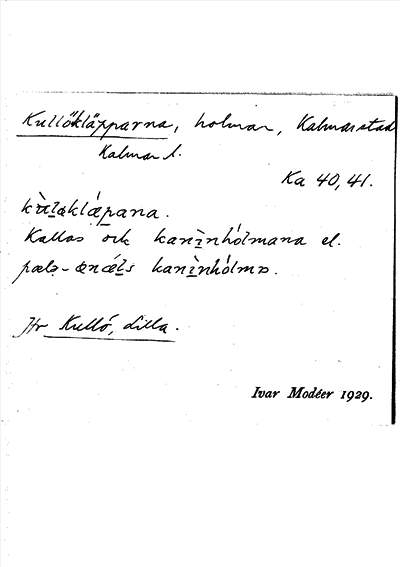 Kullökläpparna, holmar, Kalmar stad
Kalmar l.
Ka 40, 41.
kùlǝklǽpana.
Kallas och kanìnhólmana el.
pælǝ-ænǽls kanìnhólma.
Jfr Kullö, Lilla.
Ivar Modéer 1929.